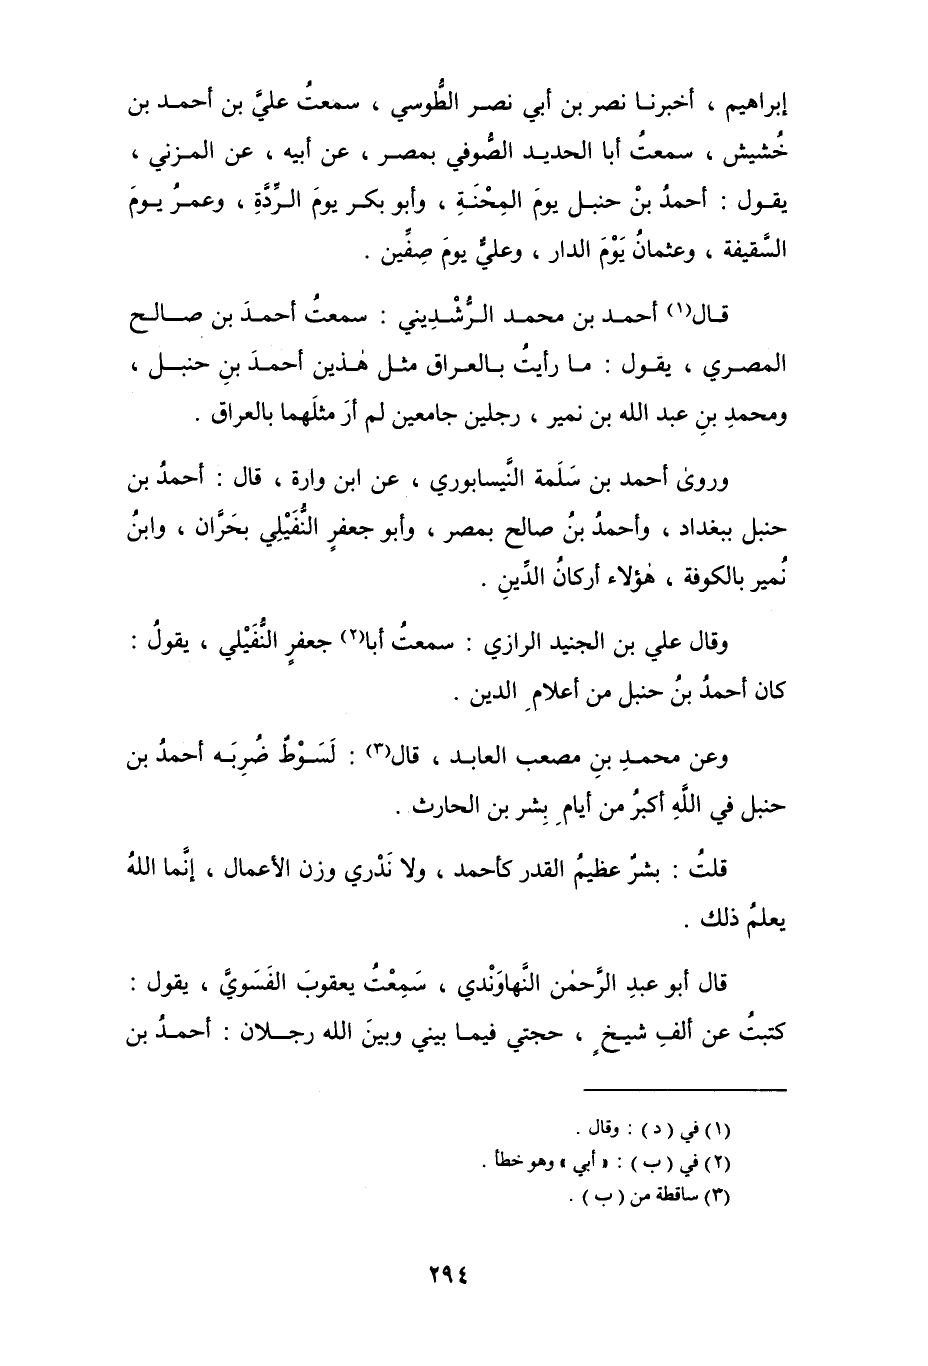 إبراهيم ، أخبرنا نصر بن أبي نصر الطُّوسي ، سمعتُ عليَّ بن أحمد بن
خُشيش ، سمعتُ أبا الحديد الصُّوفي بمصر ، عن أبيه ، عن المزني ،
يقول : أحمدُ بنْ حنبل يومَ المِحْنَةِ ، وأبو بكر يومَ الرِّدَّةِ ، وعمرُ يومَ
السَّقيفة ، وعثمانُ يَوْمَ الدار ، وعليٌّ يومَ صِفِّين .
قال(١) أحمد بن محمد الرُّشْدِيني : سمعتُ أحمدَ بن صالح
المصري ، يقول : ما رأيتُ بالعراق مثل هٰذين أحمدَ بنِ حنبل ،
ومحمدِ بنِ عبد الله بن نمير ، رجلين جامعين لم أرَ مثلَهما بالعراق .
وروىٰ أحمد بن سَلَمة النَّيسابوري ، عن ابن وارة ، قال : أحمدُ بن
حنبل ببغداد ، وأحمدُ بنُ صالح بمصر ، وأبو جعفرٍ النُّفَيْلِي بحَرَّان ، وابنُ
نُمير بالكوفة ، هٰؤلاء أركانُ الدِّينِ .
وقال علي بن الجنيد الرازي : سمعتُ أبا(٢) جعفرٍ النُّفَيْلي ، يقولُ :
كان أحمدُ بنُ حنبل من أعلامِ الدين .
وعن محمدِ بنِ مصعب العابد ، قال(٣) : لَسَوْطٌ ضُرِبَه أحمدُ بن
حنبل في اللَّهِ أكبرُ من أيامِ بِشر بن الحارث .
قلتُ : بشرٌ عظيمُ القدر كأحمد ، ولا نَدْري وزن الأعمال ، إنَّما اللهُ
يعلمُ ذلك .
قال أبو عبدِ الرَّحمٰن النَّهاوَنْدي ، سَمِعْتُ يعقوبَ الفَسَويَّ ، يقول :
كتبتُ عن ألفِ شيخٍ ، حجتي فيما بيني وبينَ الله رجلان : أحمدُ بن
(١) في ( د ) : وقال .
(٢) في ( ب ) : « أبي » وهو خطأ .
(٣) ساقطة من ( ب ) .
٢٩٤